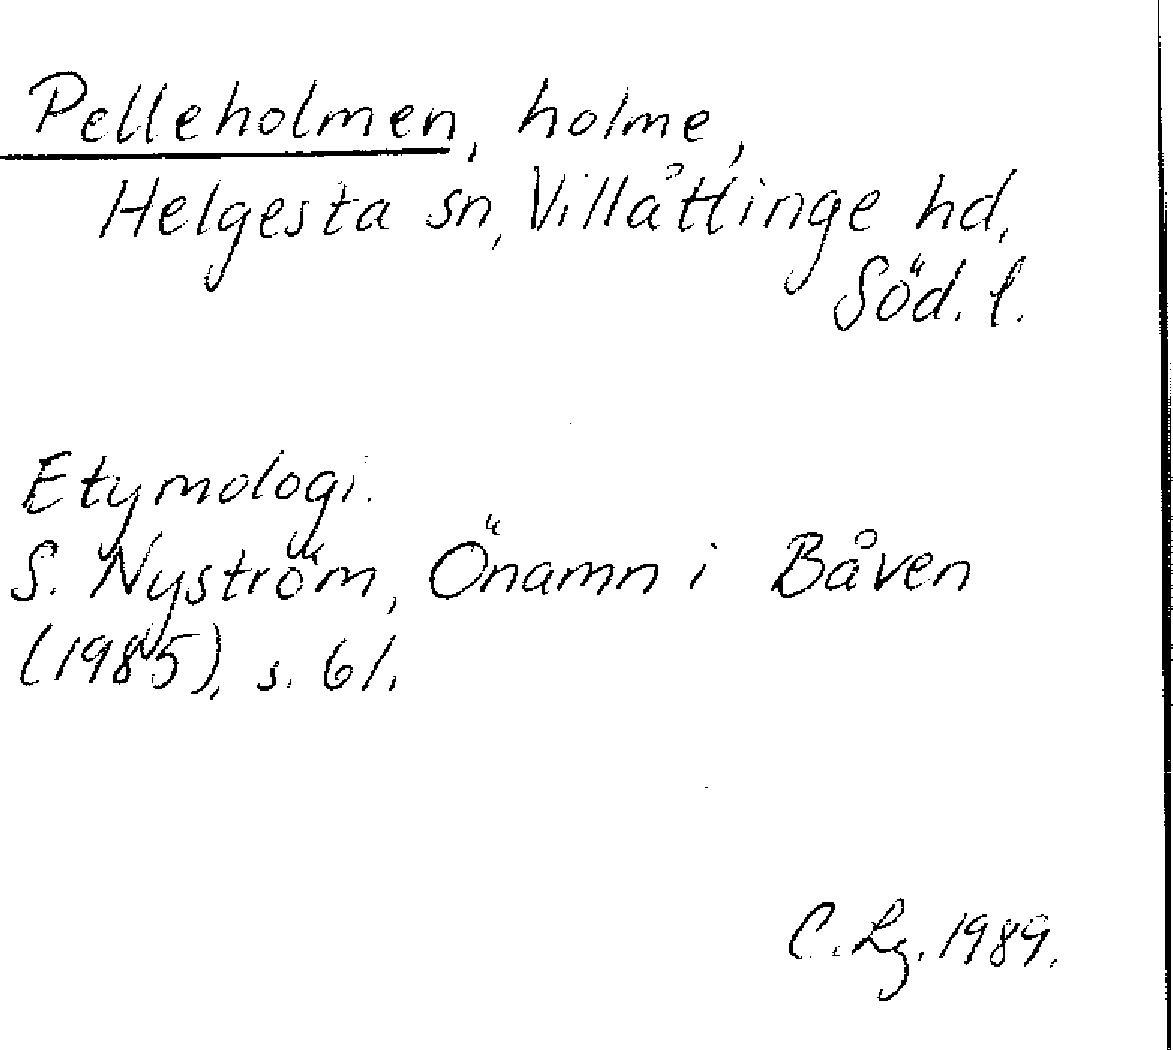 Pelleholmen, holme,
Helgesta sn, Villåttinge hd,
Söd. l.
Etymologi.
S. Nyström, Önamn i Båven
(1985), s. 61.
C. Lg. 1989.